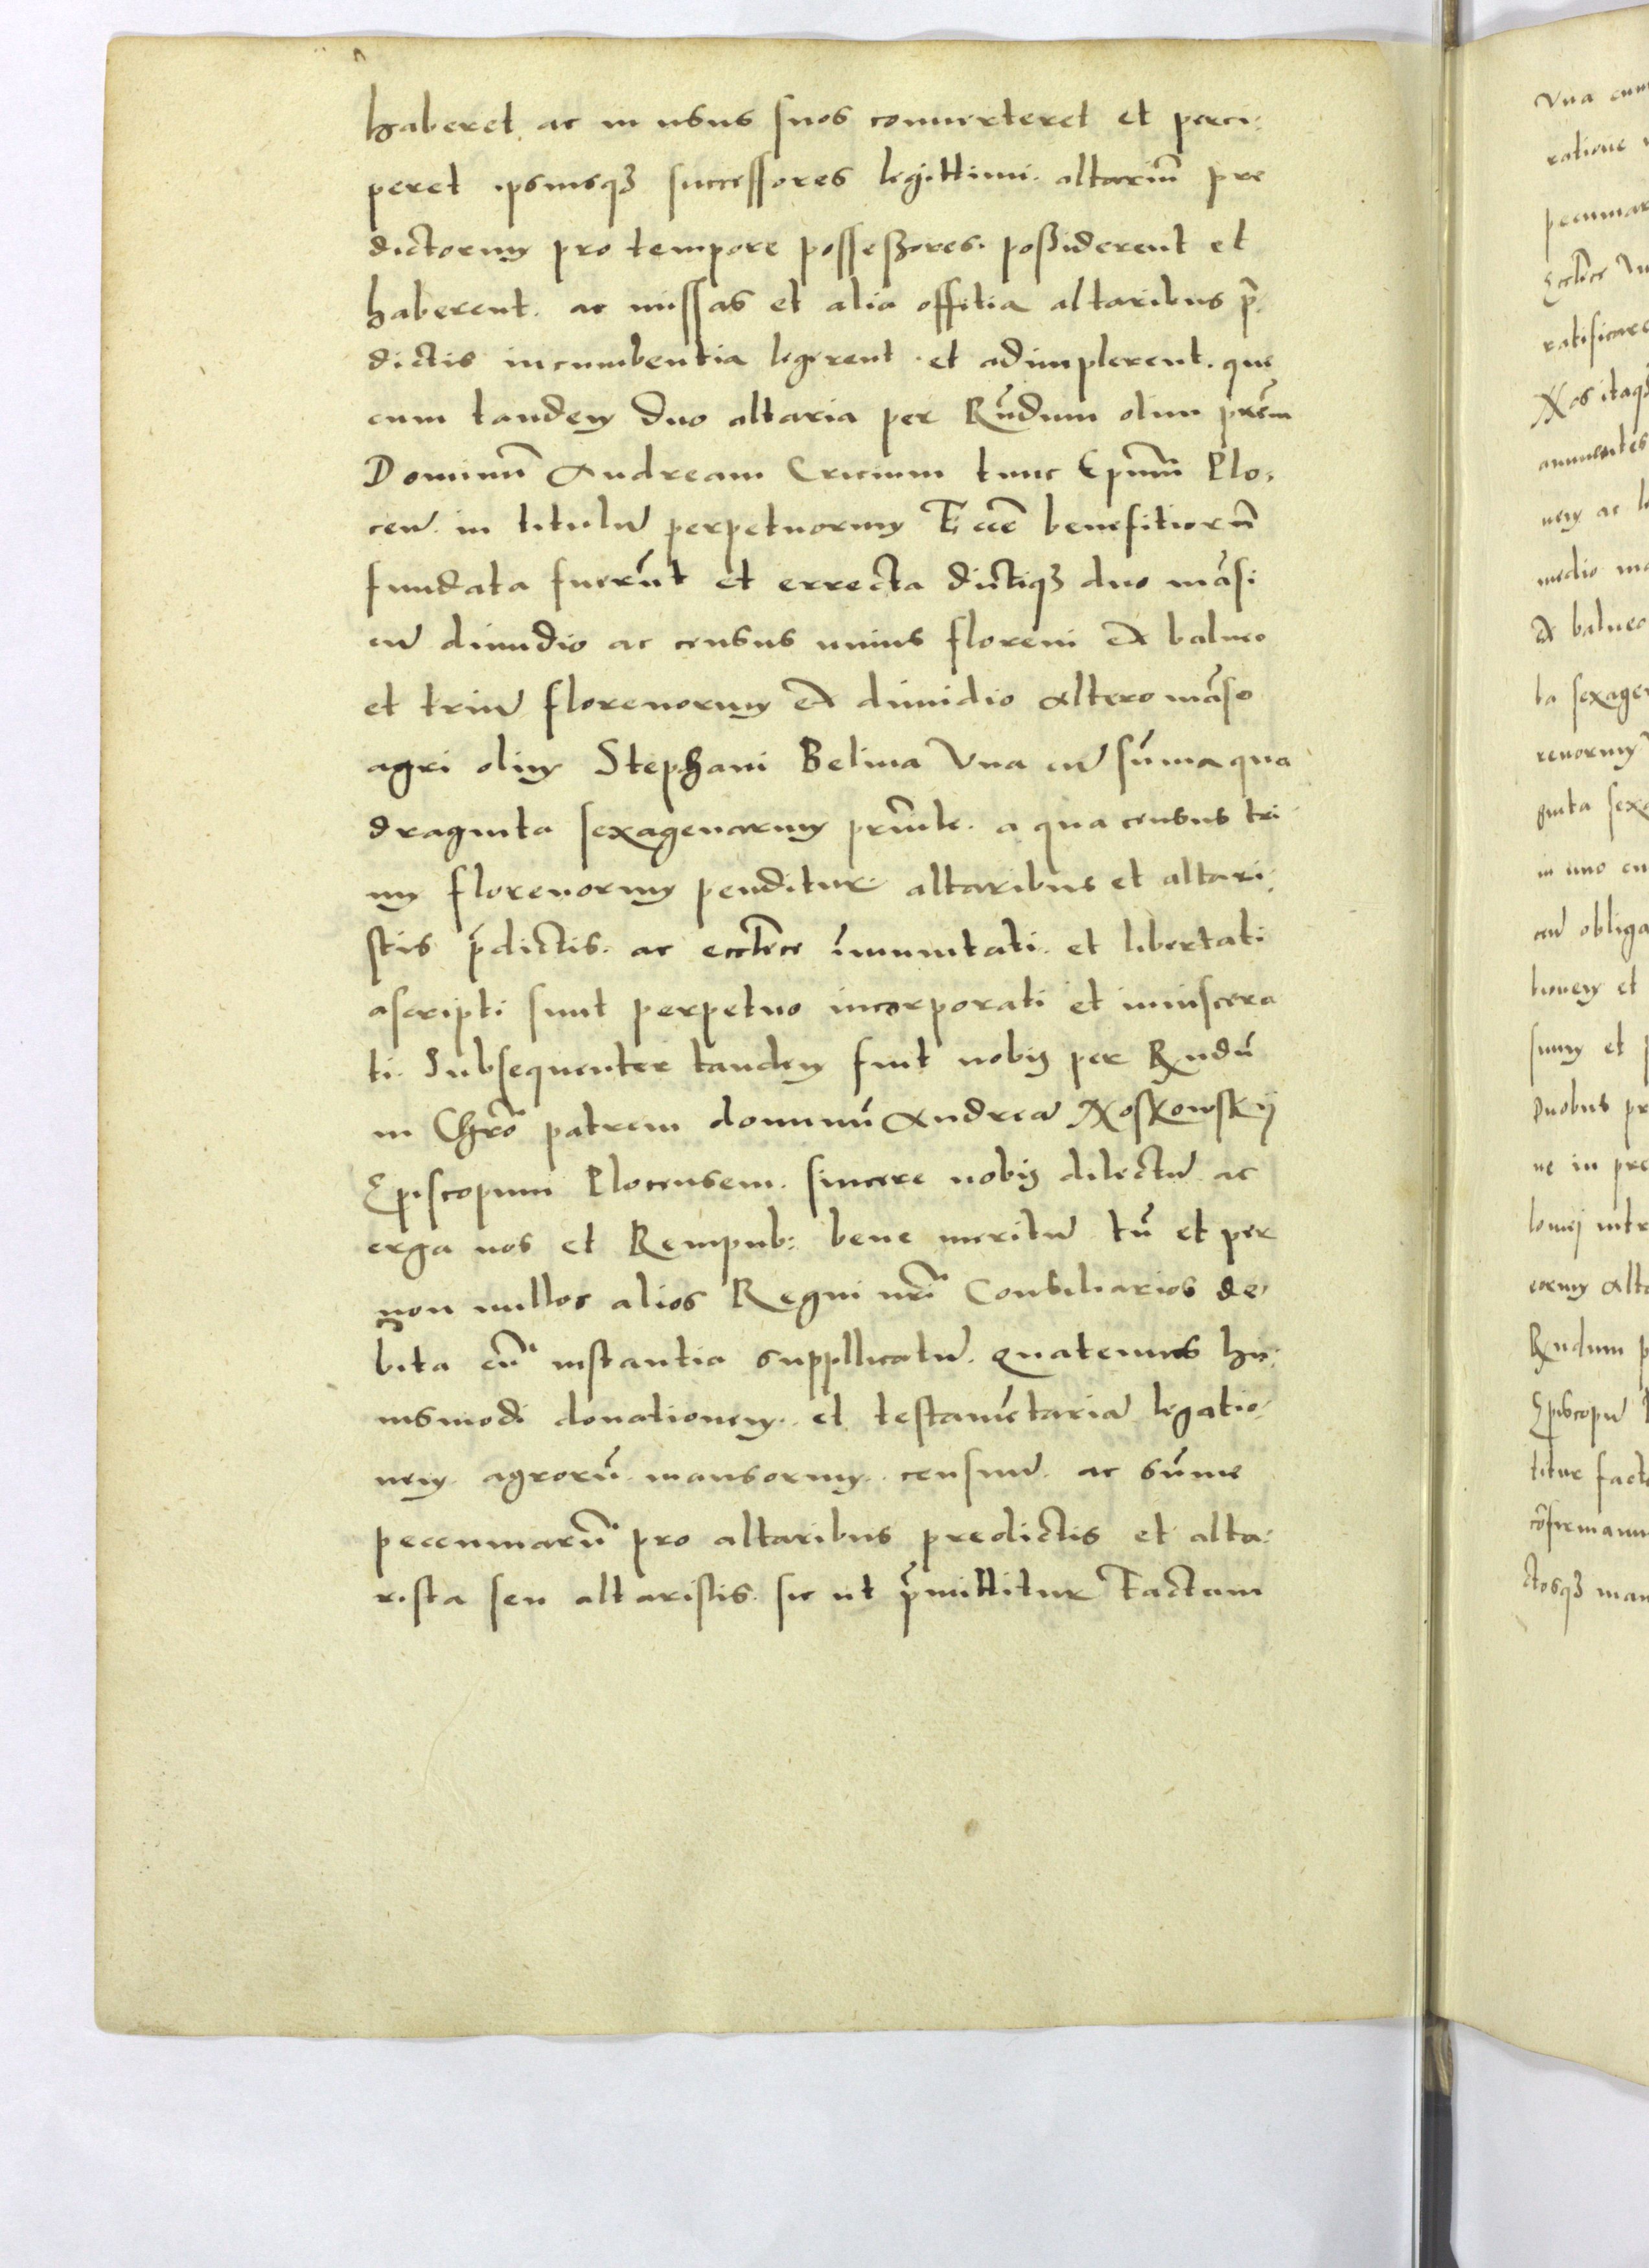 haberet ac in usus suos conuerteret et perci:
peret ipsiusqȝ successores legittimi. altariũ pre
dictorum pro tempore possessores. possiderent et
haberent. ac missas et alia offitia altaribus p̃.
dictis incumbentia legerent. et adimplerent. que
cum tandem duo altaria per Rñdum olim prẽm
Dominũ Andream Cricium tunc Epũm Plo,
ceñ. in titulũ perpetuorum Eccẽ benefitiorũ
fundata fuerũt et errecta dictiqȝ duo mãsi
cũ dimidio ac census unius floreni ex balneo
et triũ florenorum ex dimidio altero mãso
agri olim Stephani Belina Una cũ sũma qua
draginta sexagenarum
a qua census tri
um florenorum penditur. altaribus et altari:
stis p̃dictis. ac eccl̃ice ĩmunitati. et libertati
ascripti sunt perpetuo incorporati et inuiscera
ti. Subsequenter tandem fuit nobis per Rndũ
in Chrõ patrem dominũ Andreã Noskowskij
Episcopum Plocensem. sincere nobis dilectũ ac
erga nos et Rempub: bene meritũ tũ et per
non nullos alios Regni nrĩ Consiliarios de,
bita cũ instantia suppllicatũ. quatenus hu:
iusmodi donationem. et testamẽtariã legatio,
nem agrorũ mansorum. censuũ. ac sũme
peccuniarũ pro altaribus predictis et alta:
rista seu altaristis. sic ut p̃mittitur Factam
Una cum
ratione
pecuniar
ratificare
Nos itaqȝ
annuentes
nem ac
medio
ex balneo
ta sexagen
renorum
ginta sexa
in uno
cũ obliga
tionem et
suum et
Duobus pr
ne in pre
eorum Alta
Rndum
Episcopũ
titur fact
cõfirmanu
ctosqȝ man